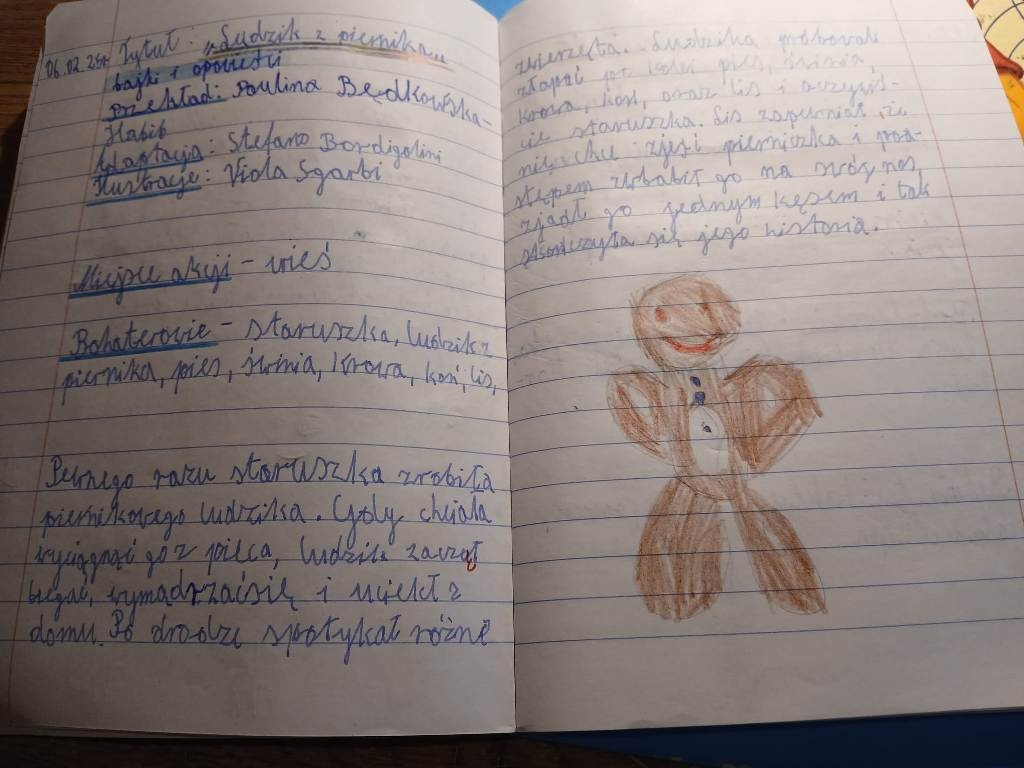 06.02. Tytuł: „Ludzik z piernika"
bajki i opowieści
Przekład: Paulina Będkowska-
Habib
Adaptacja: Stefano Bordiglioni
Ilustracje: Viola Sgarbi
Miejsce akcji - wieś
Bohaterowie - staruszka, ludzik z
piernika, pies, świnia, krowa, koń, lis,
Pewnego razu staruszka zrobiła
piernikowego ludzika. Gdy chciała
wyciągnąć go z pieca, ludzik zaczął
biegać, wymądrzać się i uciekł z
domu. Po drodze spotykał różne
zwierzęta. Ludzika próbował
złapać po kolei pies, świnia,
krowa, koń, oraz lis i oczywiś-
cie staruszka. Lis zapewniał że
nie chce zjeść pierniczka i pod-
stępem zwabił go na swój nos
zjadł go jednym kęsem i tak
skończyła się jego historia.